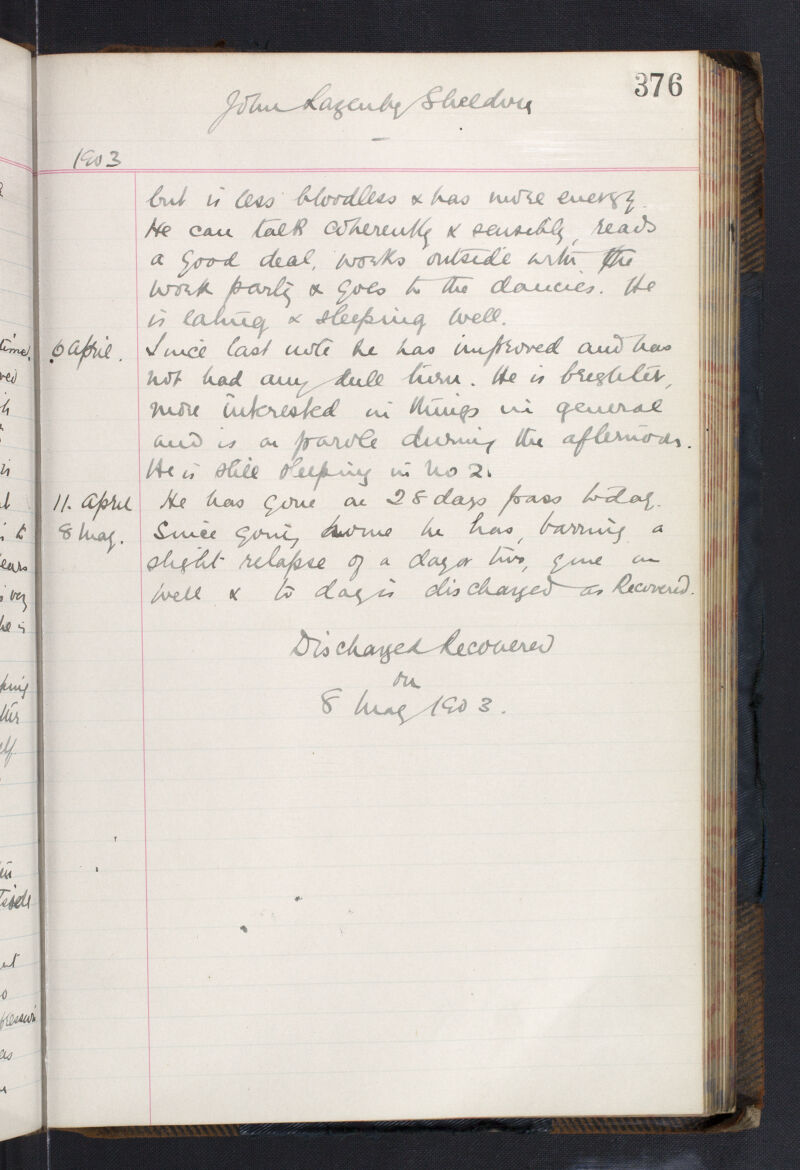 376
John Lazenby Sheldon
1903
but is less bloodless & has more energy.
He can talk coherently & sensibly, reads
a good deal, works outside with the
work party & goes to the dances. He
is eating & sleeping well.
6 April. Since last note he has improved and has
not had any dull turn. He is brighter,
more interested in things in general
and is on parole during the afternoon.
He is still sleeping in No 2.
11. April He has gone on 28 days pass today.
8 May. Since going home he has, barring a
slight relapse of a day or two, gone on
well & to day is discharged as Recovered.
Discharged Recovered
on
8 May 1903.